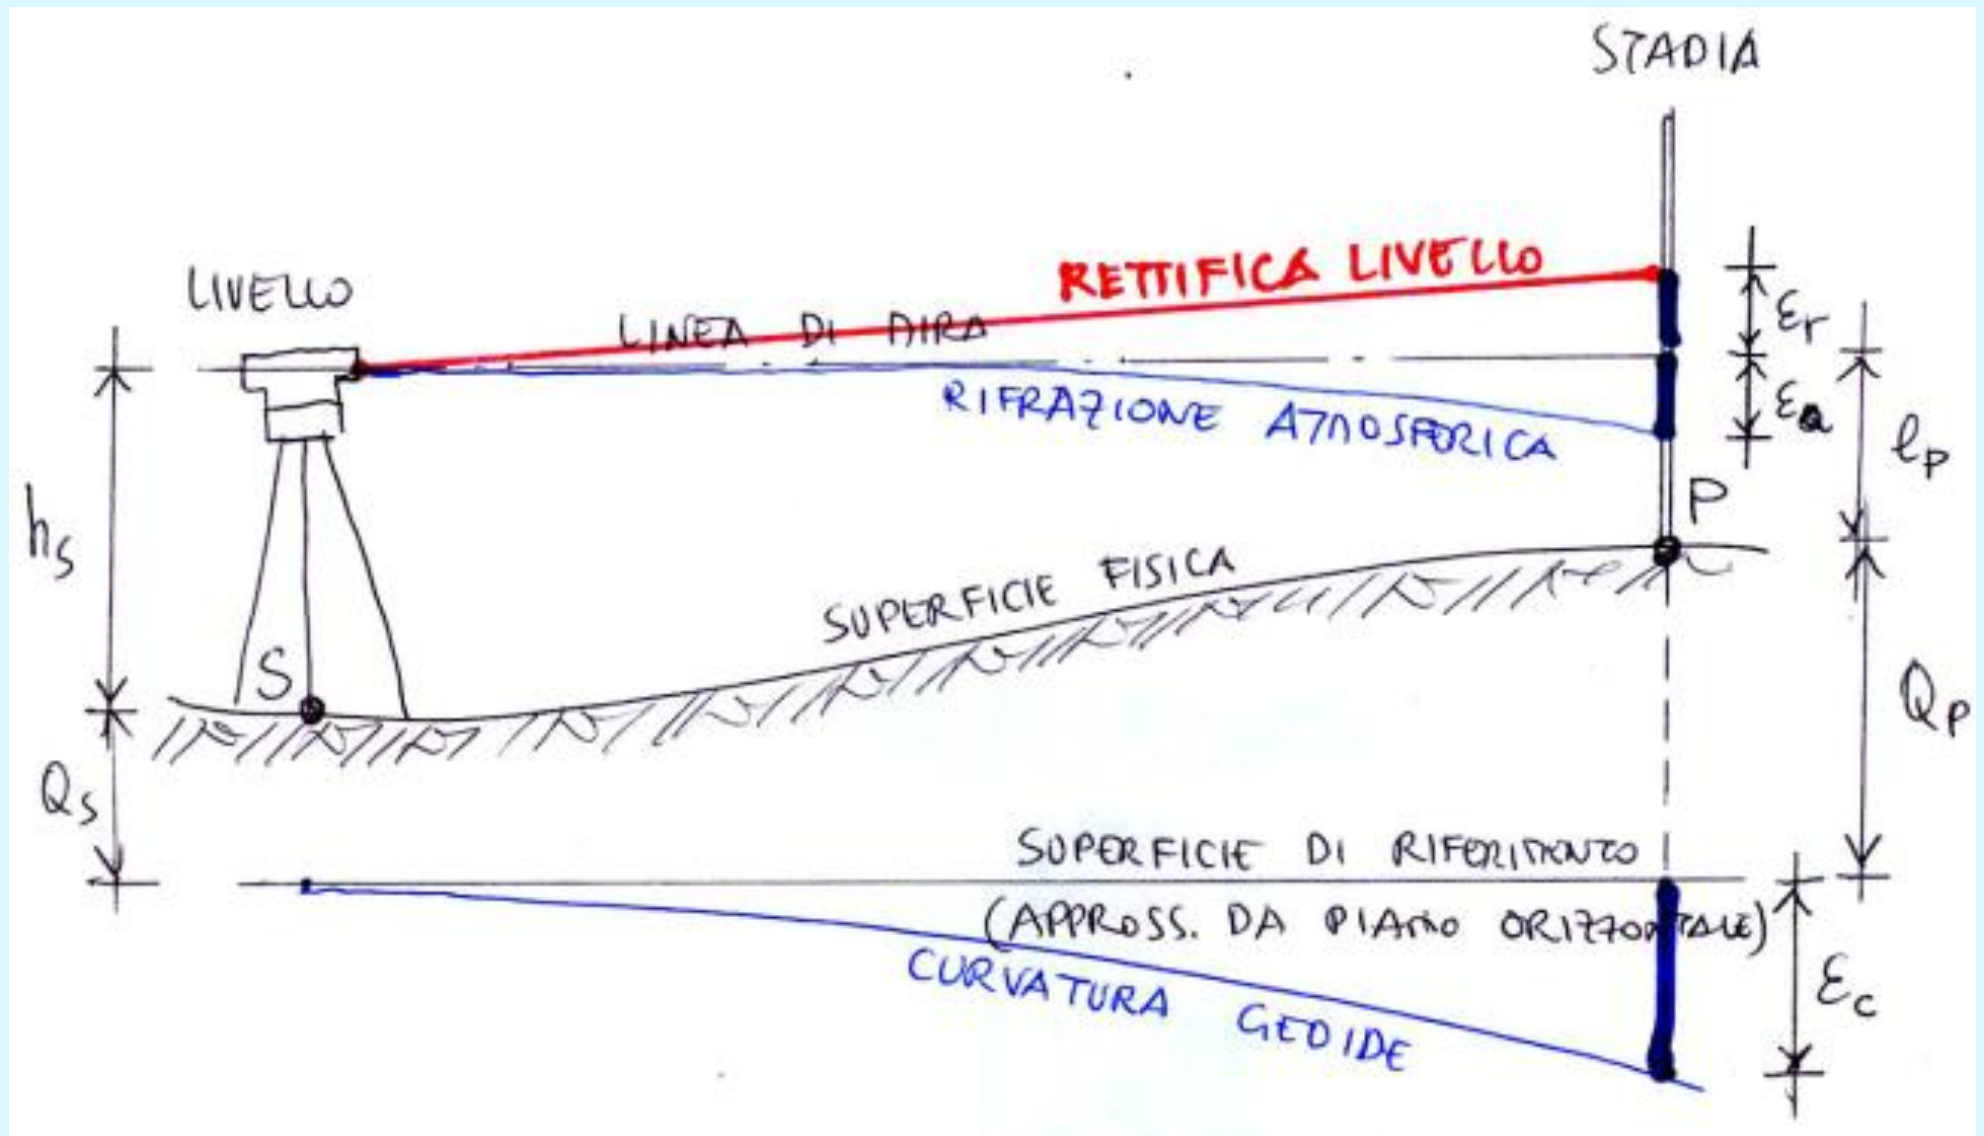 STADIA
LIVELLO
RETTIFICA LIVELLO
LINEA DI MIRA
RIFRAZIONE ATMOSFERICA
εr
εa
lP
hS
P
SUPERFICIE FISICA
S
QP
QS
SUPERFICIE DI RIFERIMENTO
(APPROSS. DA PIANO ORIZZONTALE)
CURVATURA GEOIDE
εc